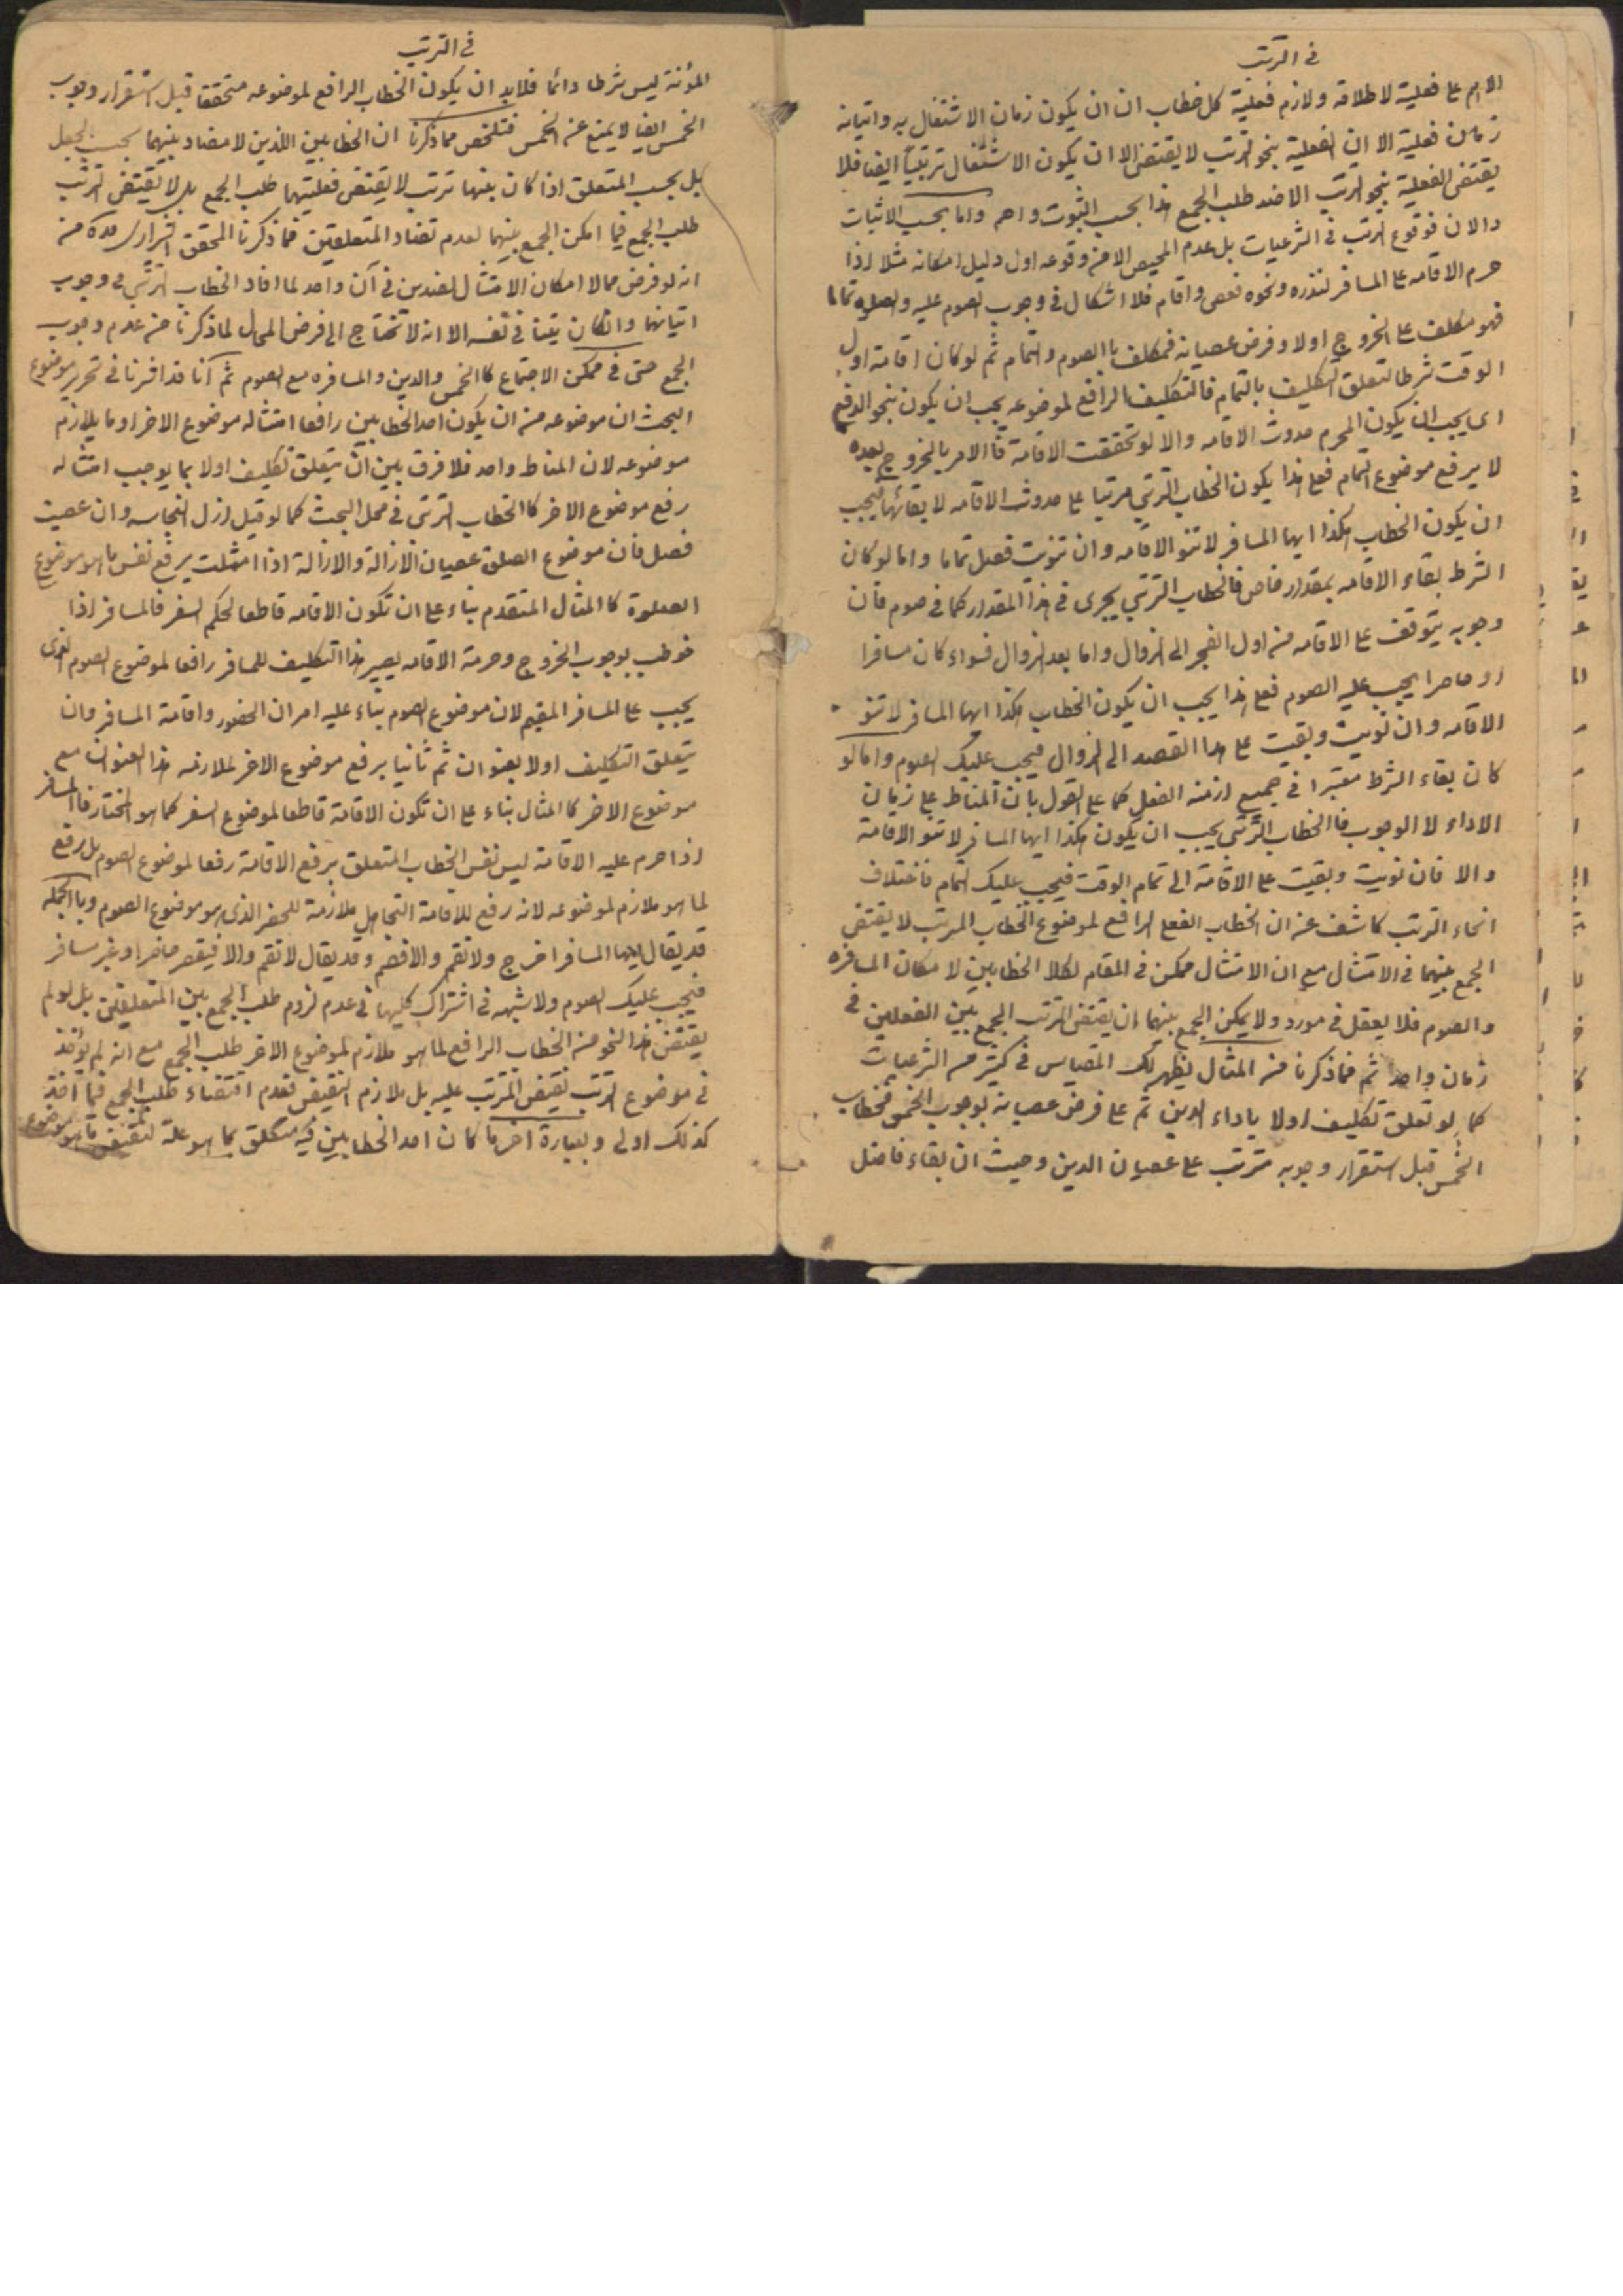 في الترتب
الاهم على فعلية لاطلاقه ولازم فعلية كل خطاب ان يكون زمان الاشتغال به واتيانه
زمان فعلية الا ان الفعلية بنحو الترتب لا يقتضى الا ان يكون الاشتغال ترتبيا ايضا فلا
يقتضى الفعلية بنحو الترتب الا ضد طلب الجمع هذا بحسب الثبوت واما بحسب الاثبات
والان فوقوع الترتب في الشرعيات بل عدم المحيص الا من وقوعه اول دليل امكانه مثلا اذا
حرم الاقامه على المسافر لنذره ونحوه فعصى واقام فلا اشكال في وجوب الصوم عليه والصلوة تماما
فهو مكلف على الخروج اولا وفرض عصيانه فمكلف بالصوم والتمام ثم لو كان اقامة اول
الوقت شرطا لتعلق التكليف بالتمام فالتكليف الرافع لموضوعه يجب ان يكون بنحو الدفع
اى يجب ان يكون المحرم حدوث الاقامه والا لو تحققت الاقامة فالامر بالخروج بعده
لا يرفع موضوع التمام فعلى هذا يكون الخطاب الترتبي مرتبا على حدوث الاقامه لا بقائها فيجب
ان يكون الخطاب هكذا ايها المسافر لا تنو الاقامه وان تنويت فصل تماما واما لو كان
الشرط بقاء الاقامه بمقدار خاص فالخطاب الترتبي يجرى في هذا المقدار كما في صوم فان
وجوبه يتوقف على الاقامه من اول الفجر الى الزوال واما بعد الزوال فسواء كان مسافرا
او حاضرا يجب عليه الصوم فعلى هذا يجب ان يكون الخطاب هكذا ايها المسافر لا تنو
الاقامه وان نويت وبقيت على هذا القصد الى الزوال فيجب عليك الصوم واما لو
كان بقاء الشرط معتبرا في جميع ازمنه الفعل كما على القول بان المناط على زمان
الاداء لا الوجوب فالخطاب الترتبي يجب ان يكون هكذا ايها المسافر لا تنو الاقامة
والا فان نويت وبقيت على الاقامة الى تمام الوقت فيجب عليك التمام فاختلاف
انحاء الترتب كاشف عن ان الخطاب الفعلى الرافع لموضوع الخطاب المرتب لا يقتضى
الجمع بينهما في الامتثال مع ان الامتثال ممكن في المقام لكلا الخطابين لامكان المسافره
والصوم فلا يعقل في مورد ولا يمكن الجمع بينهما ان يقتضى الترتب الجمع بين الفعلين في
زمان واحد ثم مما ذكرنا من المثال يظهر لك المقياس في كثير من الشرعيات
كما لو تعلق تكليف اولا باداء الدين ثم على فرض عصيانه بوجوب الخمس فخطاب
الخمس قبل استقرار وجوبه مترتب على عصيان الدين وحيث ان بقاء فاضل
في الترتب
المؤنة ليس شرطا دائما فلا بد ان يكون الخطاب الرافع لموضوعه متحققا قبل استقرار وجوب
الخمس ايضا لا يمنع عن الخمس فتلخص مما ذكرنا ان الخطابين اللذين لا مضاد بينهما بحسب الجعل
بل بحسب المتعلق اذا كان بينهما ترتب لا يقتضى فعليتهما طلب الجمع بل لا يقتضى الترتب
طلب الجمع فيما امكن الجمع بينهما لعدم تضاد المتعلقين فما ذكرنا المحقق من
انه لو فرض محالا امكان الامتثال للضدين في آن واحد لما افاد الخطاب الترتبي في وجوب
اتيانهما وان كان متينا في نفسه الا انه لا تحتاج الى فرض المحال لما ذكرنا من عدم وجوب
الجمع حتى في ممكن الاجتماع كالخمس والدين والمسافره مع الصوم ثم آنا قد اخترنا في تحرير موضوع
البحث ان موضوعه من ان يكون احد الخطابين رافعا امتثاله موضوع الاخر او ما يلازم
موضوعه لان المناط واحد فلا فرق بين ان يتعلق تكليف اولا بما يوجب امتثاله
رفع موضوع الاخر كالخطاب الترتبي في محل البحث كما لو قيل ازل النجاسه وان عصيت
فصل فان موضوع الصلوة عصيان الازالة والازالة اذا امتثلت يرفع نفس ما هو موضوع
الصلوة كالمثال المتقدم بناء على ان تكون الاقامه قاطعا لحكم السفر فالمسافر اذا
خوطب بوجوب الخروج وحرمة الاقامه يصير هذا التكليف للمسافر رافعا لموضوع الصوم الذى
يجب على المسافر المقيم لان موضوع الصوم بناء عليه امران الحضور واقامة المسافر وان
يتعلق التكليف اولا بعنوان ثم ثانيا يرفع موضوع الاخر لملازمه هذا العنوان مع
موضوع الاخر كالمثال بناء على ان تكون الاقامة قاطعا لموضوع السفر كما هو المختار فالمسافر
اذا حرم عليه الاقامة ليس نفس الخطاب المتعلق برفع الاقامة رفعا لموضوع الصوم بل رفع
لما هو ملازم لموضوعه لانه رفع للاقامة ملازمة للحضر الذى هو موضوع الصوم وبالجمله
قد يقال ايها المسافر اخرج ولا تقم والا فصم وقد يقال لا تقم والا فيقصر حاضرا وغير مسافر
فيجب عليك الصوم ولا شبهه في اشتراك كليهما في عدم لزوم طلب الجمع بين المتعلقين بل لو لم
يقتضى هذا النحو من الخطاب الرافع لما هو ملازم لموضوع الاخر طلب الجمع مع انه لم يؤخذ
في موضوع الترتب نقيض المترتب عليه بل ملازم النقيض فعدم اقتضاء طلب الجمع فيما اخذ
كذلك اولى وبعبارة اخرى ما كان احد الخطابين فيه متعلق بما هو علة لنقيض ما هو موضوع